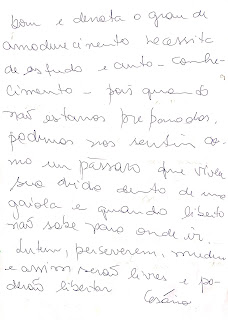 bom e denota o grau de
amadurecimento necessita
de estudo e auto-conhe-
cimento - pois quando
não estamos preparados,
podemos nos sentir co-
mo um pássaro que viveu
sua vida dentro de uma
gaiola e quando liberto
não sabe para onde ir.
Lutem, perseverem, mudem
e assim serão livres e po-
derão libertar
Cesário